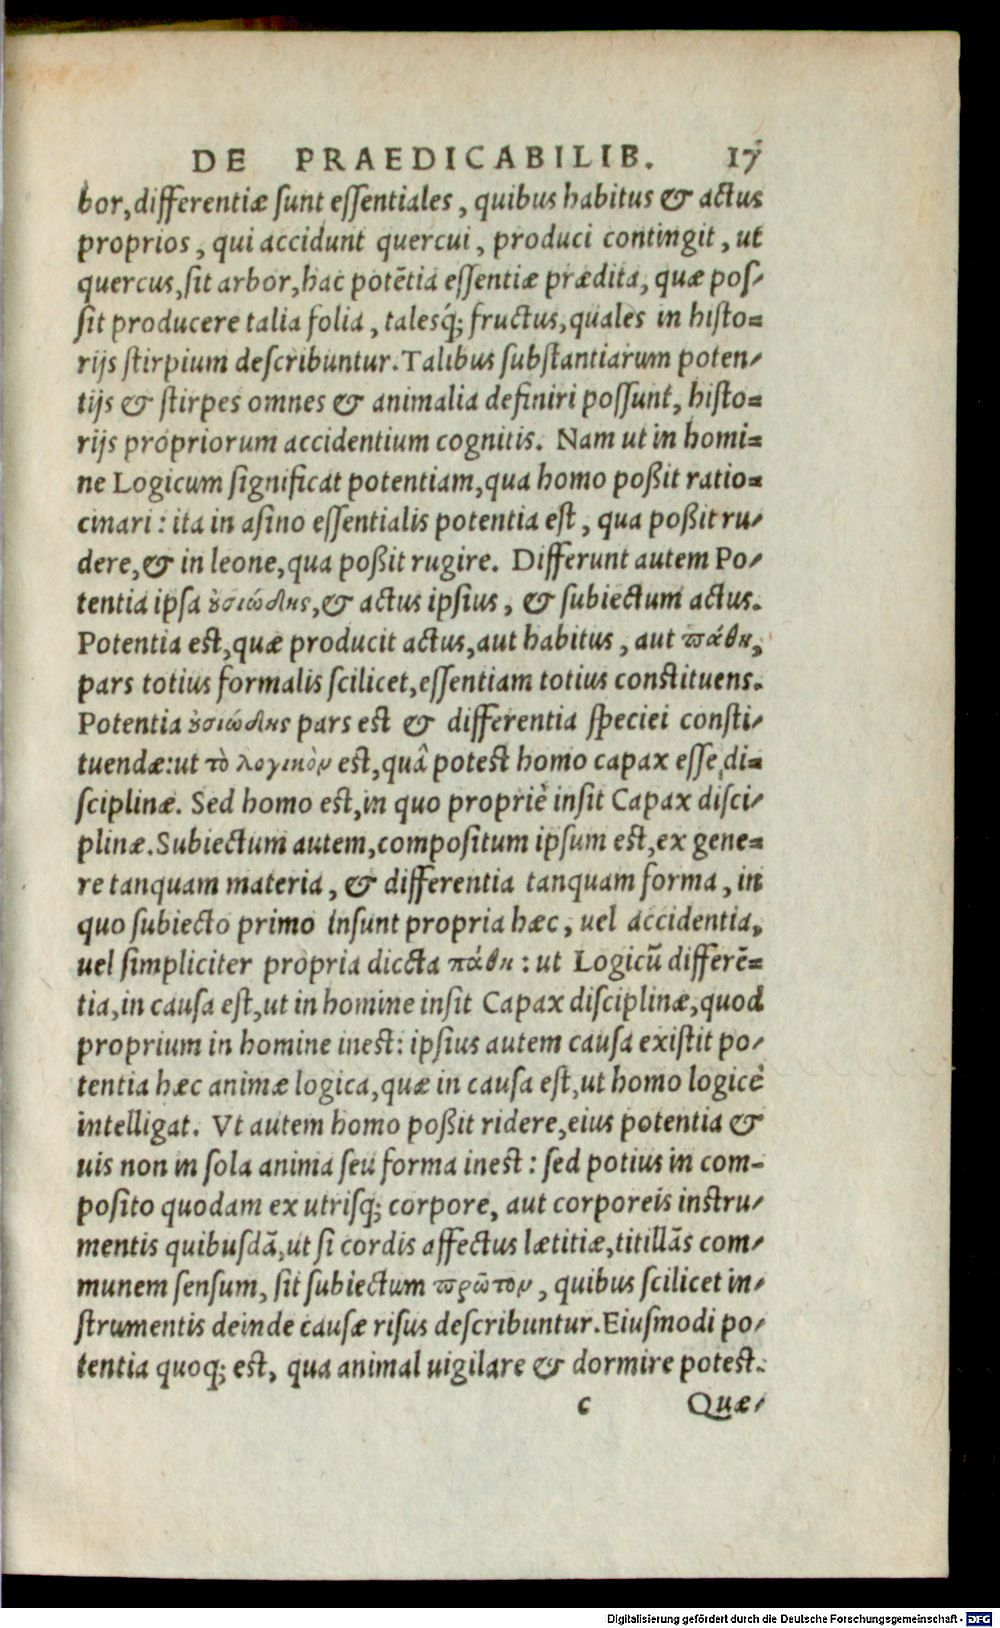 DE PRAEDICABILIB. 17
bor, differentiæ sunt essentiales, quibus habitus & actus
proprios, qui accidunt quercui, produci contingit, ut
quercus, sit arbor, hac potẽtia essentiæ prædita, quæ pos-
sit producere talia folia, talesq́; fructus, quales in histo=
rijs stirpium describuntur. Talibus substantiarum poten-
tijs & stirpes omnes & animalia definiri possunt, histo=
rijs propriorum accidentium cognitis. Nam ut in homi=
ne Logicum significat potentiam, qua homo poßit ratio=
cinari: ita in asino essentialis potentia est, qua poßit ru-
dere, & in leone, qua poßit rugire. Differunt autem Po-
tentia ipsa ȣ̓σιώδης, & actus ipsius, & subiectum actus.
Potentia est, quæ producit actus, aut habitus, aut πάθη,
pars totius formalis scilicet, essentiam totius constituens.
Potentia ȣ̓σιώδης pars est & differentia speciei consti-
tuendæ: ut τὸ λογικὸν est, quâ potest homo capax esse di=
sciplinæ. Sed homo est, in quo propriè insit Capax disci-
plinæ. Subiectum autem, compositum ipsum est, ex gene=
re tanquam materia, & differentia tanquam forma, in
quo subiecto primo insunt propria hæc, uel accidentia,
uel simpliciter propria diccta πάθη: ut Logicũ differẽ=
tia, in causa est, ut in homine insit Capax disciplinæ, quod
proprium in homine inest: ipsius autem causa existit po-
tentia hæc animæ logica, quæ in causa est, ut homo logicè
intelligat. Vt autem homo poßit ridere, eius potentia &
uis non in sola anima seu forma inest: sed potius in com-
posito quodam ex utrisq; corpore, aut corporeis instru-
mentis quibusdã, ut si cordis affectus lætitiæ, titillãs com-
munem sensum, sit subiectum πρῶτον, quibus scilicet in-
strumentis deinde causæ risus describuntur. Eiusmodi po-
tentia quoq; est, qua animal uigilare & dormire potest.
c Quæ-
Digitalisierung gefördert durch die Deutsche Forschungsgemeinschaft - DFG